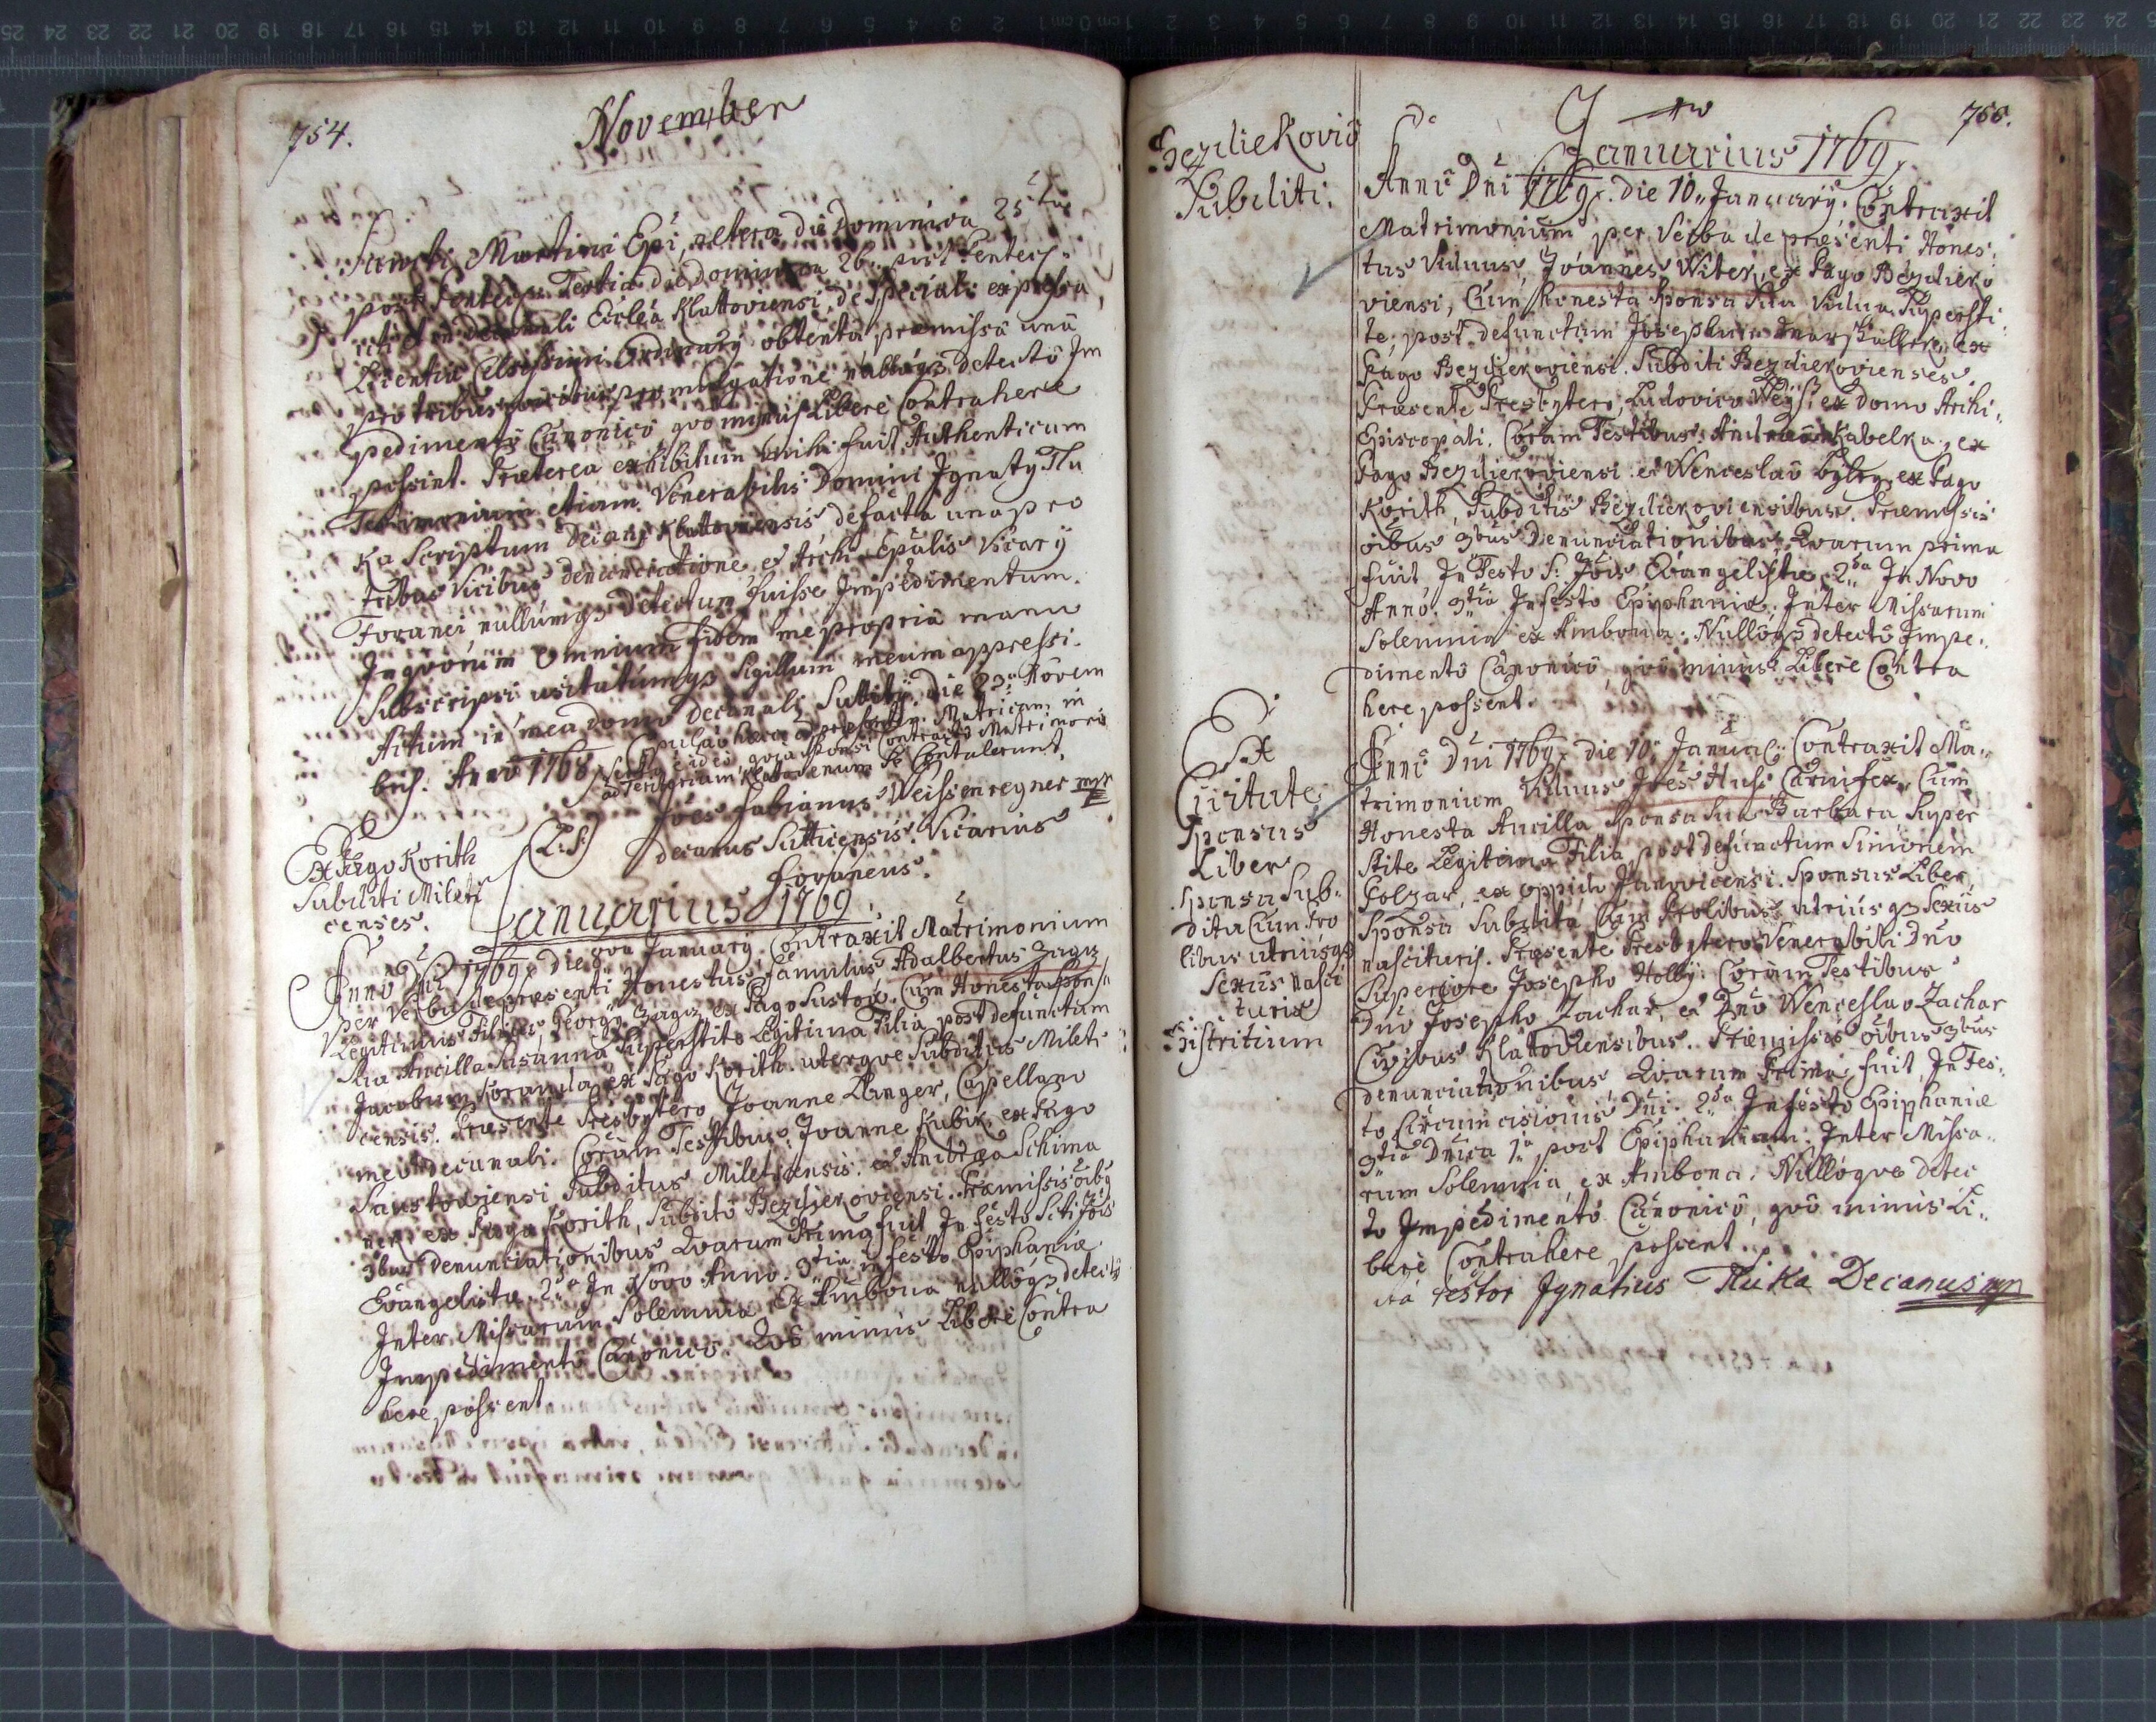 754.
November
Sancti Martini Epi, altera die Dominica 25ta
post Pentecs: Tertia die Dominica 26. post Pentecs:
uti et in Decanali Ecclea Klattoviensi, de speciali expressa,
Licentia Celsissimi Ordinarÿ obtenta praemissa una
pro tribus vicibus promulgatione nullóqз detectô Im
pedimentô Canonicô quo minus Libere Contrahere
possint. Praeterea exhibitum mihi fuit Authenticum
Testimonium etiam Venerabilis Domini Ignatÿ Tlu
Ka Scriptum Decani Klattoviensis de facta una pro
tribus Vicibus denunciatione, et Archi-Epālis Vicarÿ
Foranei nullúmqз detectum fuisse Impedimentum.
In quorum omnium Fidem me propria manu
Subscripsi usitatúmqз Sigillum meum appressi.
Actum in mea domo Decanali Suttitÿ die 23a Novem
bris. Anno 1768.
Copulao haec ad praesentem Matricam in
serta ideo quia Sponsi Contracto Matrimonio
ad Territorium Klattoviensem se Contulerunt.
(L:S:)
Joēs Fabianus Weissenregner mpr
Decanus Sutticensis Vicarius
Foraneus.
Ex Pago Korith
Subditi Mileti
censes.
Januarius 1769.
Anno Dni 1769. Die 9va Januarÿ. Contraxit Matrimonium
per Verba de praesenti Honestus Famulus Adalbertus
Legitimus Filius Georgÿ ex Pago Sustov. Cum Honesta Spon
sua Ancilla Susanna Superstite Legitima Filia post defunctum
Jacobum Koranda ex Pago Korith. uterque Subditus Mileti
censis. Praesente Presbytero, Joanne Langer, Capellano
meo Decanali. Coram Testibus, Joanne Kubik, ex Pago
Saustoviensi Subditus Mileticensis. et Andrea Schima
ner, ex Pago Korith, Subdito Bezdiekoviensi. Praemissis oibq
3bus Denunciationibus Quarum Prima fuit In Festo Scti Jōis
Evangelistae 2da In Novo Anno. 3tia in Festo Epiphaniae
Inter Missarum Solemnia Ex Ambona nullóqз detectô
Impedimentô Canonicô. Quô minus Liberè Contra
here possent
755.
Januarius 1769.
Bezdiekovio
Subditi.
Anno Dni 1769. die 10. Januarÿ. Contraxit
Matrimonium per Verba de praesenti Hones:
tus Viduus, Joannes Witer, ex Pago Bezdieko
viensi, Cum Honesta Sponsa Sua Vidua Supersti:
te, post defunctum Josephum ex
Pago Bezdiekoviensi. Subditi Bezdiekovienses.
Praesente Presbytero, Ludovico Weÿs, ex Domo Archi:
Episcopali. Coram Testibus, Andrea Kabelka, ex
Pago Bezdiekoviensi et Wenceslao ex Pago
Korith, Subditis Bezdiekoviensibus. Praemissis
oibus 3bus Denunciationibus, Quarum prima
fuit In Festo S: Jōis Evangelistae, 2da In Novo
Anno. 3tia In festo Epiphaniae. Inter Missarum
Solemnia ex Ambona. Nullóqз detectô Impe:
dimentô Canonicô, quô minus Liberè Contra
here possent.
Ex
Civitate
Sponsus
Liber
Sponsa Sub:
dita Cum Pro
libus utriúsqз
Sexus Nasci
turis
Bistritium
Anno Dni 1769. die 10. Januar: Contraxit Ma:
trimonium Viduus Joēs Huss, Carnifex, Cum
Honesta Ancilla Sponsa Sua Barbara, Super
stite Legitima Filia post defunctum Simonem
Folzar, ex oppido Janovicensi. Sponsus Liber,
Sponsa Subdita, Cum Prolibus utriúsqз Sexus
nascituris. Praesente Presbytero Venerabili Dno
Superiore Josepho Hollÿ. Coram Testibus
Dno Josepho Zachar, et Dno Wenceslao Zachar
Civibus Klattoviensibus. Praemissis oibus 3bus
denunciationibus, Quarum Prima fuit, In Fes:
to Circumcisionis Dni. 2da In festo Epiphaniae
3tia Dnica 1a post Epiphaniam. Inter Missa:
rum Solemnia, ex Ambona. Nullóque detec
to Impedimentô Canonicô, quô minus Li:
berè Contrahere possent.
ita testor Ignatius Tluka Decanus mp